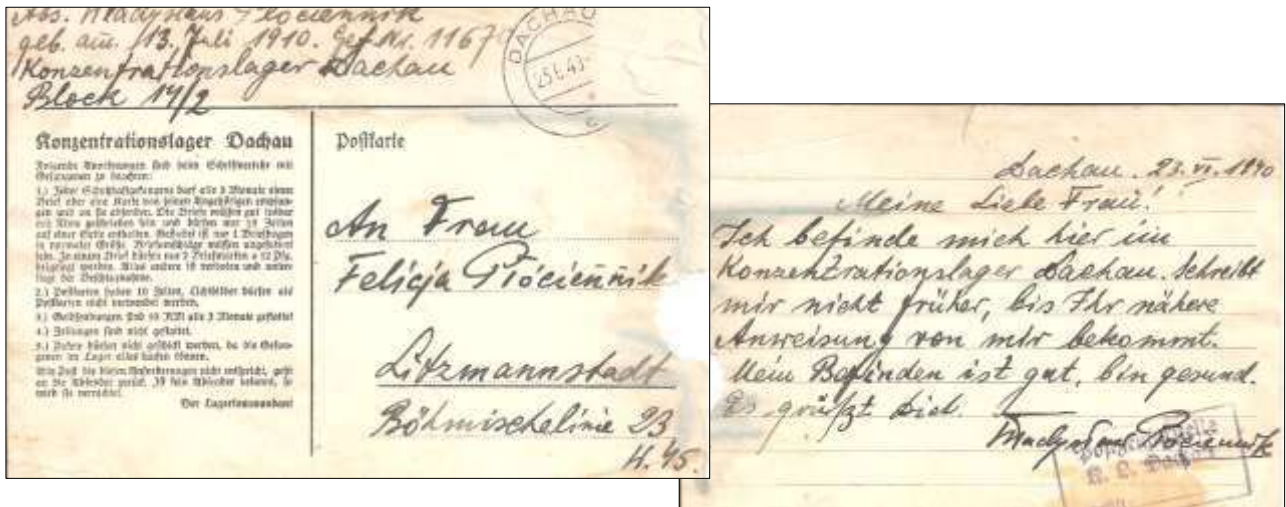 Abs. Władysław Płóciennik
geb. am. 13. Juli 1910. Gef. Nr. 1167
Konzentrationslager Dachau
Block 14/2
DACHAU
Konzentrationslager Dachau
Folgende Anordnungen sind beim Schriftverkehr mit
Gefangenen zu beachten:
1.) Jeder Schutzhaftgefangene darf alle 3 Monate einen
Brief oder eine Karte von seinen Angehörigen empfan-
gen und an sie absenden. Die Briefe müssen gut lesbar
mit Tinte geschrieben sein und dürfen nur 15 Zeilen
auf einer Seite enthalten. Gestattet ist nur 1 Briefbogen
in normaler Größe. Briefumschläge müssen ungefüttert
sein. In einem Brief dürfen nur 5 Briefmarken a 12 Pfg.
beigelegt werden. Alles andere ist verboten und unter-
liegt der Beschlagnahme.
2.) Postkarten haben 10 Zeilen. Lichtbilder dürfen als
Postkarten nicht verwendet werden.
3.) Geldsendungen sind 10 RM alle 3 Monate gestattet
4.) Zeitungen sind nicht gestattet.
5.) Pakete dürfen nicht geschickt werden, da die Gefan-
genen im Lager alles kaufen können.
Alle Post die diesen Anforderungen nicht entspricht, geht
an die Absender zurück. Ist kein Absender bekannt, so
wird sie vernichtet.
Der Lagerkommandant
Postkarte
An Frau
Felicja Płóciennik
Litzmannstadt
Böhmischelinie 23
H. 45.
Dachau. 23. VI. 1940
Meine Liebe Frau!
Ich befinde mich hier im
Konzentrationslager Dachau. Schreibt
mir nicht früher, bis Ihr nähere
Anweisung von mir bekommt.
Mein Befinden ist gut, bin gesund.
Es grüßt Dich.
Władysław Płóciennik
K. L. Dachau